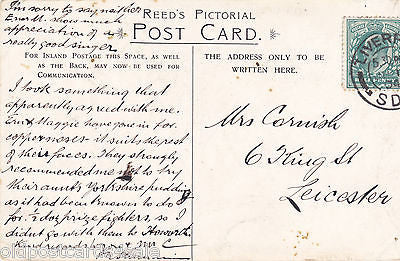 I'm sorry to say neither
Ern or M. show much
appreciation of a
really good singer
REED'S PICTORIAL
POST CARD.
FOR INLAND POSTAGE THIS SPACE, AS WELL
AS THE BACK, MAY NOW BE USED FOR
COMMUNICATION.
THE ADDRESS ONLY TO BE
WRITTEN HERE.
I took something that
apparently agreed with me.
Ern & Maggie have gone in for
copper noses - it suits the rest
of their faces. They strongly
recommended me not to try
their aunts Yorkshire pudding
as it had been known to do
for ½ doz prize fighters, so I
didn't go with them to Howorth
Kind regards
Mrs Cornish
6 King St
Leicester
oldpostcards4sale